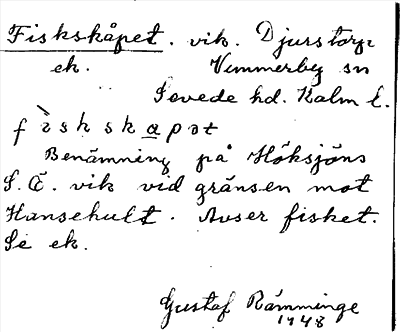 Fiskskåpet. vik. Djurstorp
ek. Vimmerby sn
Sevede hd. Kalm l.
fìskskapət
Benämning på Höksjöns
S.Ö. vik vid gränsen mot
Hansehult. Avser fisket.
Se ek.
Gustaf Rämminge
1948